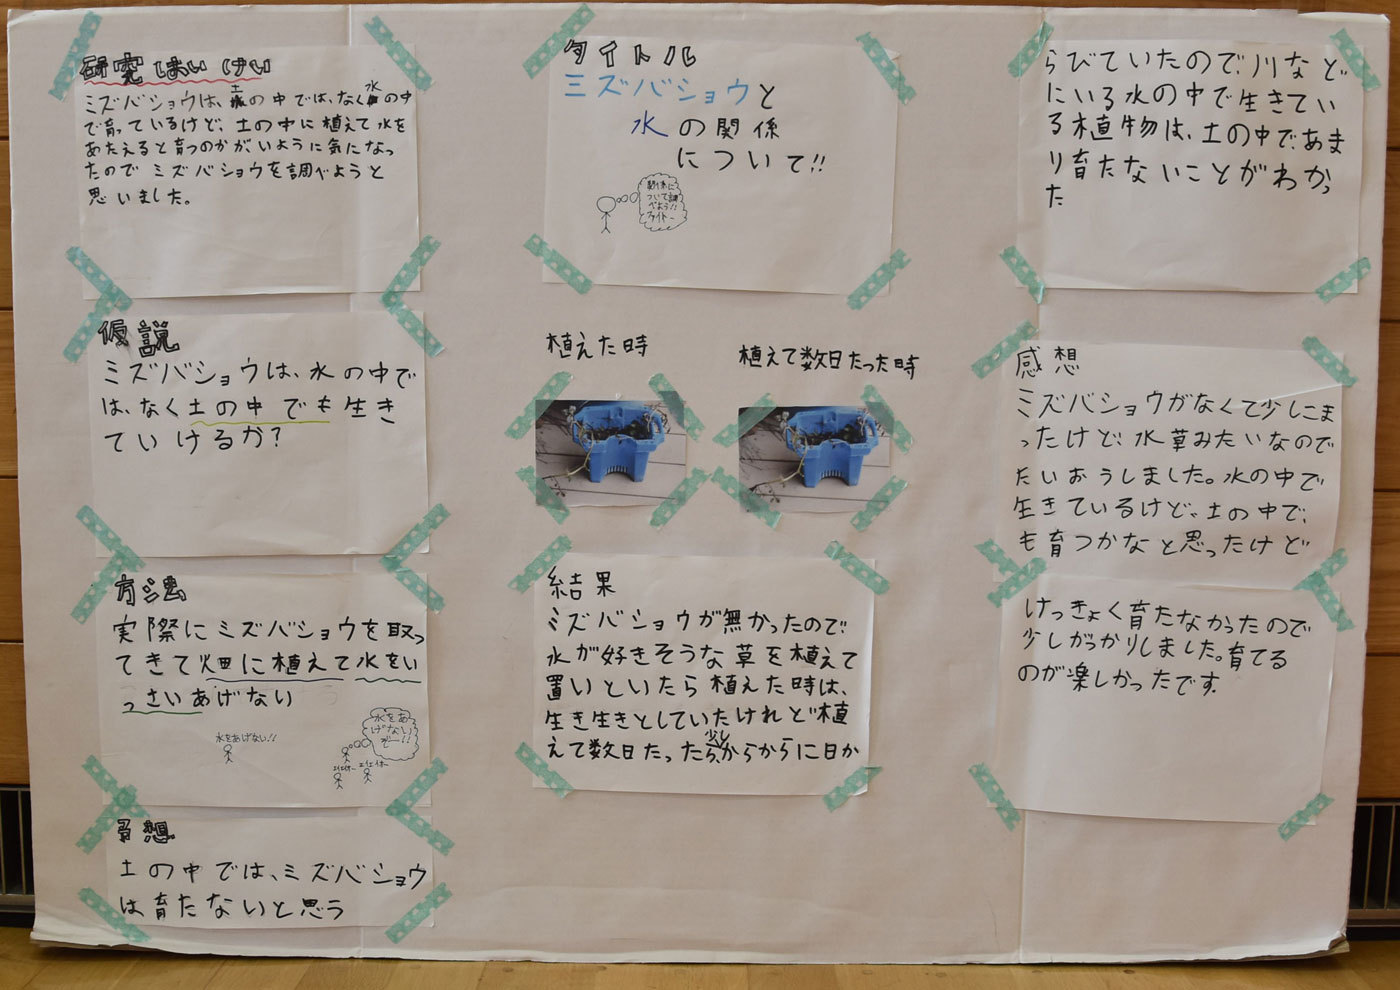 研究はいけい
ミズバショウは、土の中では、なく水の中
で育っているけど、土の中に植えて水を
あたえると育つのかがいように気になっ
たのでミズバショウを調べようと
思いました。
仮説
ミズバショウは、水の中で
は、なく土の中でも生き
ていけるか?
方法
実際にミズバショウを取っ
てきて畑に植えて水をい
っさいあげない
水をあげない!!
水をあ
げない
ぞー!!
エイエイオー
エイエイオー
予想
土の中では、ミズバショウ
は育たないと思う
タイトル
ミズバショウと
水の関係
について!!
関係に
ついて調
べよう!!
ファイトー
植えた時
植えて数日たった時
結果
ミズバショウが無かったので、
水が好きそうな草を植えて
置いといたら植えた時は、
生き生きとしていたけれど植
えて数日たったら、少しからからに日か
らびていたので、川など
にいる水の中で生きてい
る植物は、土の中で、あま
り育たないことがわかっ
た
感想
ミズバショウがなくて少しこま
ったけど、水草みたいなので
たいおうしました。水の中で
生きているけど、土の中で、
も育つかなと思ったけど
けっきょく育たなかったので
少しがっかりしました。育てる
のが楽しかったです。